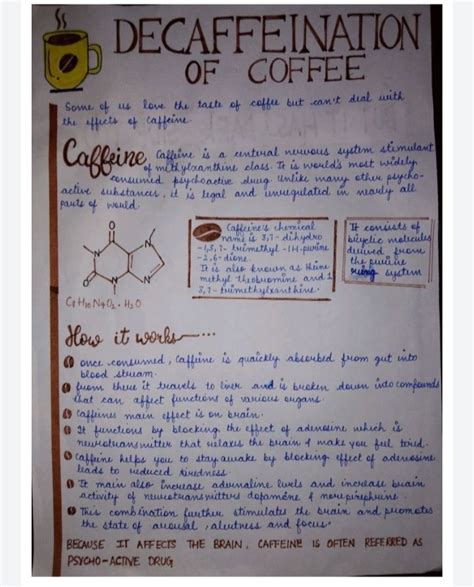 DECAFFEINATION
OF COFFEE
Some of us love the taste of coffee but can't deal with
the effects of caffeine
Caffeine Caffeine is a centeral nervous system stimulant
of methylxanthine class. It is world's most widely
consumed psychoactive drug unlike many other psycho-
active substances, it is legal and unregulated in nearly all
parts of world.
Caffeine's chemical
name is 3,7- dihydro
-1,3,7- trimethyl -1H-purine
-2,6-dione.
It is also known as
methyl theobromine and 1
3,7- trimethylxanthine.
It consists of
bicyclic molecules
derived from
the purine
ring system
C8H10N4O2 . H2O
How it works
once consumed, Caffeine is quickly absorbed from gut into
blood stream.
from there it travels to liver and is broken down into compounds
that can affect functions of various organs.
Caffeines main effect is on brain.
It functions by blocking the effect of adenosine which is
neurotransmitter that relaxes the brain & make you feel tired.
Caffeine helps you to stay awake by blocking effect of adenosine
leads to reduced tiredness.
It main also increase adrnaline levels and increase brain
activity of neurotransmitters dopamine & norepinephrine.
This combination further stimulates the brain and promotes
the state of arousal, alertness and focus.
BECAUSE IT AFFECTS THE BRAIN, CAFFEINE IS OFTEN REFERRED AS
PSYCHO-ACTIVE DRUG